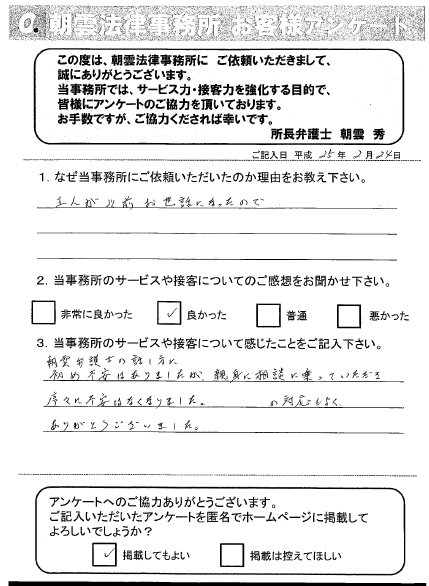 Q. 朝雲法律事務所 お客様アンケート
この度は、朝雲法律事務所に ご依頼いただきまして、
誠にありがとうございます。
当事務所では、サービス力・接客力を強化する目的で、
皆様にアンケートのご協力を頂いております。
お手数ですが、ご協力くだされば幸いです。
所長弁護士 朝雲 秀
ご記入日 平成 25 年 2 月 24 日
1. なぜ当事務所にご依頼いただいたのか理由をお教え下さい。
主人が以前お世話になったので
2. 当事務所のサービスや接客についてのご感想をお聞かせ下さい。
非常に良かった ✓ 良かった 普通 悪かった
3. 当事務所のサービスや接客について感じたことをご記入下さい。
朝雲弁護士の話し方に
初め不安はありましたが、親身に相談に乗っていただき
序々に不安はなくなりました。 の対応もよく
ありがとうございました。
アンケートへのご協力ありがとうございます。
ご記入いただいたアンケートを匿名でホームページに掲載して
よろしいでしょうか?
✓ 掲載してもよい 掲載は控えてほしい